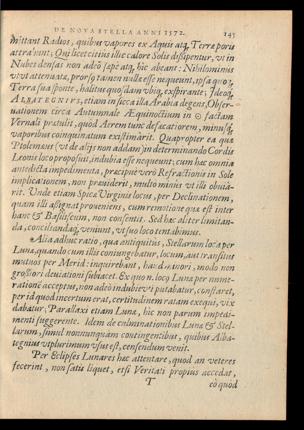 DE NOVA STELLA ANNI 1572. 145
mittant Radios, quibus vapores ex Aquis atq; Terræ poris
attrahunt: Qui licet citius illic calore Solis dissipentur, vt in
Nubes densas non adeò sæpè atq; hic abeant: Nihilominus
vt vt attenuata, prorsus tamen nulla esse nequeunt, ipsa quoq;
Terra sua sponte, halitus quosdam vbiq; exspirante: Ideoq;
ALBATEGNIVS, etiam in sicca illa Arabia degens, Obser-
uationem circa Autumnale Æquinoctium in ☉ factam
Vernali prætulit, quòd Aerem tunc defæcatiorem, minusq;
vaporibus coinquinatum existimârit. Quapropter ea quæ
Ptolemæus (vt de alijs non addam) in determinando Cordis
Leonis loco proposuit, indubia esse nequeunt; cum hæc omnia
antedicta impedimenta, præcipuè verò Refractionis in Sole
implicationem, non præuiderit, multò minus vt illi obuiâ-
rit. Vnde etiam Spicæ Virginis locus, per Declinationem,
quam illi assignat proueniens, cum remotione quæ est inter
hanc & Basiliscum, non consentit. Sed hæc aliter limitan-
da, conciliandaq; veniunt, vt suo loco tentabimus.
Alia adhuc ratio, qua antiquitùs, Stellarum loca per
Lunam, quando cum illis coniungebatur, locum, aut transitus
mutuos per Merid: inquirebant, haud minori, modò non
grossiori deuiationi subiacet. Ex quo n. loca Lunæ per nume-
rationē acceptus, non adeò indubiè vt putabatur, constaret,
per id quod incertum erat, certitudinem ratam exequi, vix
dabatur; Parallaxi etiam Lunæ, hîc non parum impedi-
menti suggerente. Idem de culminationibus Lunæ & Stel-
larum, simul nonnunquam contingentibus, quibus Alba-
tegnius vtplurimum vsus est, censendum venit.
Per Eclipses Lunares hæc attentare, quod an veteres
fecerint, non satis liquet, etsi Veritati propius accedat,
T eò quod